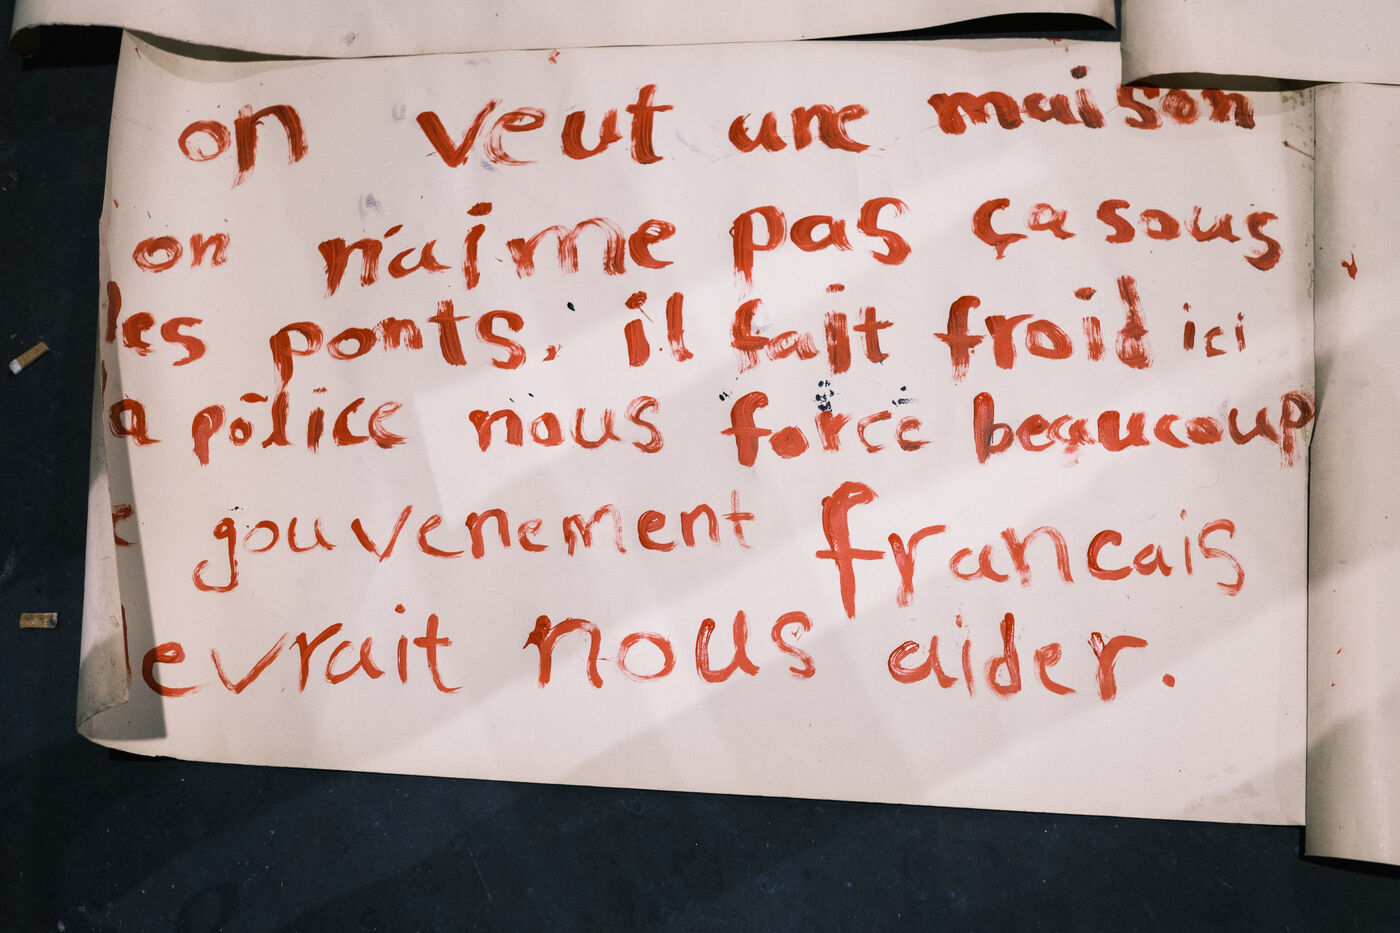 on veut une maison
on n'aime pas ça sous
les ponts. il fait froid ici
la police nous force beaucoup
e gouvenement francais
evrait nous aider.